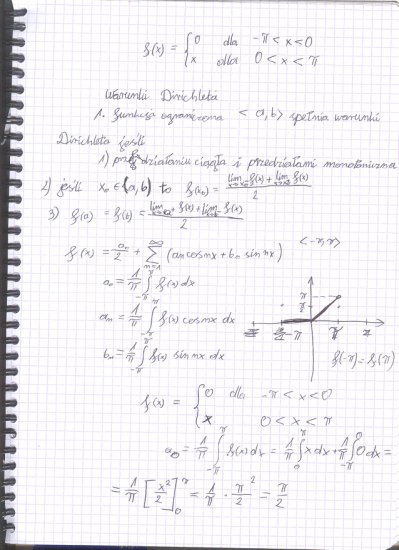 f(x) = { 0 dla -π < x < 0
x dla 0 < x < π
Warunki Dirichleta
1. funkcja ograniczona < a, b > spełnia warunki
Dirichleta jeśli
1) przedziałami ciągła i przedziałami monotoniczna
2) jeśli x₀ ∈ (a, b) to f(x₀) = lim f(x) + lim f(x) / 2
3) f(a) = f(b) = lim f(x) + lim f(x) / 2
f(x) = a₀/2 + ∞ Σ n=1 (an cos nx + bn sin nx)
< -π, π >
a₀ = 1/π ∫_{-π}^{π} f(x) dx
an = 1/π ∫_{-π}^{π} f(x) cos nx dx
bn = 1/π ∫_{-π}^{π} f(x) sin nx dx
π
-π π
f(-π) = f(π)
f(x) = { 0 dla -π < x < 0
x 0 < x < π
a₀ = 1/π ∫_{-π}^{π} f(x) dx = 1/π ∫_{0}^{π} x dx + 1/π ∫_{-π}^{0} 0 dx =
= 1/π [x²/2]_{0}^{π} = 1/π · π²/2 = π/2